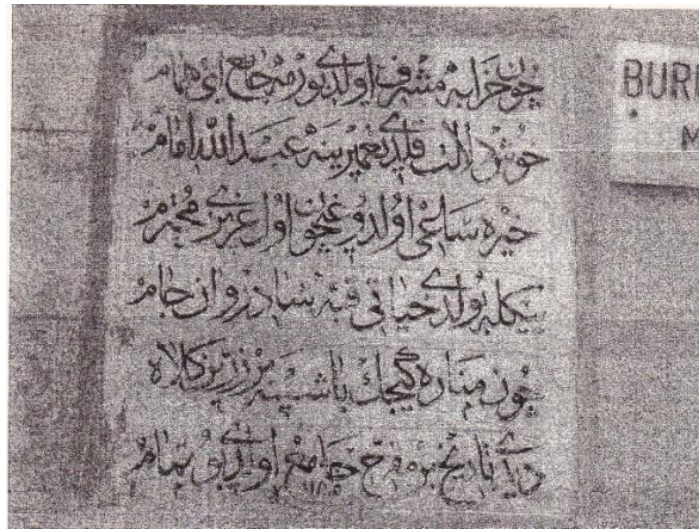 چون خرابه مشرف اولدی بو رمه جامع ای همام
خوش دلالت قلدی تعمیرینه عبد الله امام
خیره ساعی اولدوغیچون اول عزیزی محترم
یکله بولدی حیاتی قبه شادروان جام
چون مناره گیجك باشینه بر زرین کلاه
دیدی تاریخ بره فرح جامع اولدی بو تمام
BUR
M